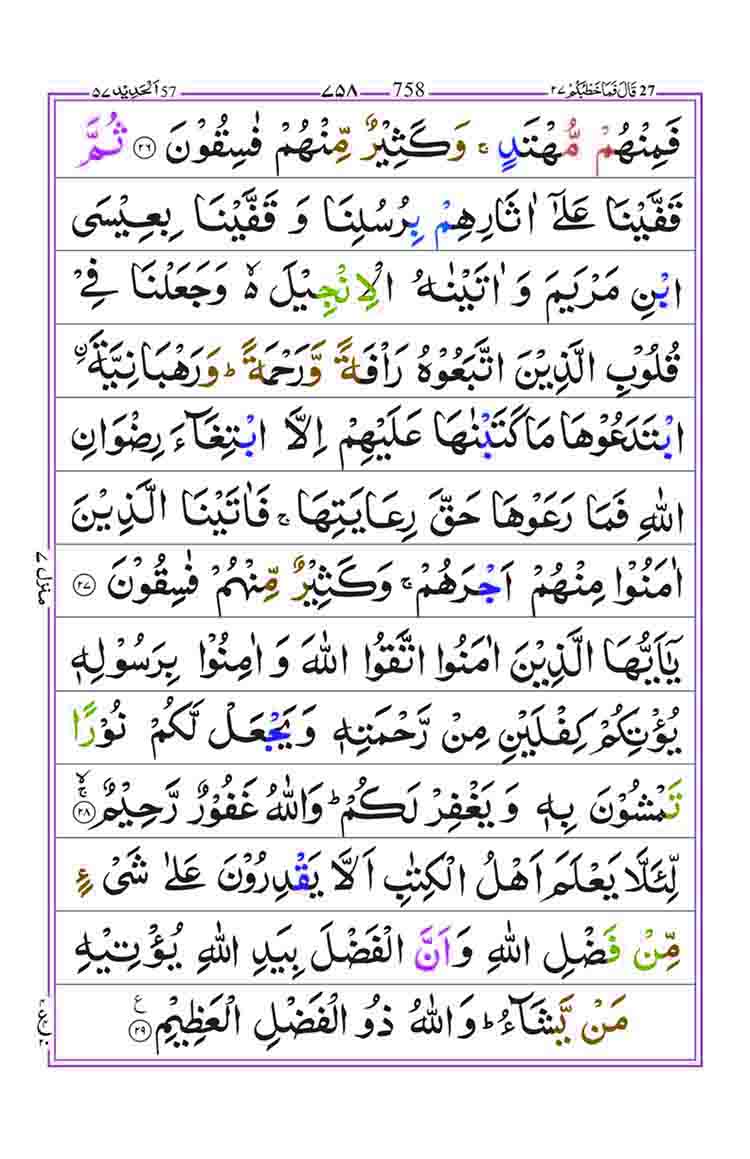 27 قَالَ فَمَا خَطْبُكُمْ ٢٧ 758 ٧٥٨ 57 اَلْحَدِيْد ٥٧
فَمِنْهُمْ مُّهْتَدٍ ۚ وَكَثِيْرٌ مِّنْهُمْ فٰسِقُوْنَ ٢٦ ثُمَّ
قَفَّيْنَا عَلٰٓى اٰثَارِهِمْ بِرُسُلِنَا وَ قَفَّيْنَا بِعِيْسَى
ابْنِ مَرْيَمَ وَ اٰتَيْنٰهُ الْاِنْجِيْلَ ۙ۬ وَجَعَلْنَا فِيْ
قُلُوْبِ الَّذِيْنَ اتَّبَعُوْهُ رَاْفَةً وَّرَحْمَةً ؕ وَرَهْبَانِيَّةَ ۨ
ابْتَدَعُوْهَا مَا كَتَبْنٰهَا عَلَيْهِمْ اِلَّا ابْتِغَآءَ رِضْوَانِ
اللّٰهِ فَمَا رَعَوْهَا حَقَّ رِعَايَتِهَا ۚ فَاٰتَيْنَا الَّذِيْنَ
اٰمَنُوْا مِنْهُمْ اَجْرَهُمْ ۚ وَكَثِيْرٌ مِّنْهُمْ فٰسِقُوْنَ ٢٧
يٰٓاَيُّهَا الَّذِيْنَ اٰمَنُوا اتَّقُوا اللّٰهَ وَ اٰمِنُوْا بِرَسُوْلِهٖ
يُؤْتِكُمْ كِفْلَيْنِ مِنْ رَّحْمَتِهٖ وَيَجْعَلْ لَّكُمْ نُوْرًا
تَمْشُوْنَ بِهٖ وَيَغْفِرْ لَكُمْ ؕ وَاللّٰهُ غَفُوْرٌ رَّحِيْمٌ ۚۙ ٢٨
لِّئَلَّا يَعْلَمَ اَهْلُ الْكِتٰبِ اَلَّا يَقْدِرُوْنَ عَلٰى شَيْءٍ
مِّنْ فَضْلِ اللّٰهِ وَاَنَّ الْفَضْلَ بِيَدِ اللّٰهِ يُؤْتِيْهِ
مَنْ يَّشَآءُ ؕ وَاللّٰهُ ذُو الْفَضْلِ الْعَظِيْمِ ع ٢٩
منزل ٧